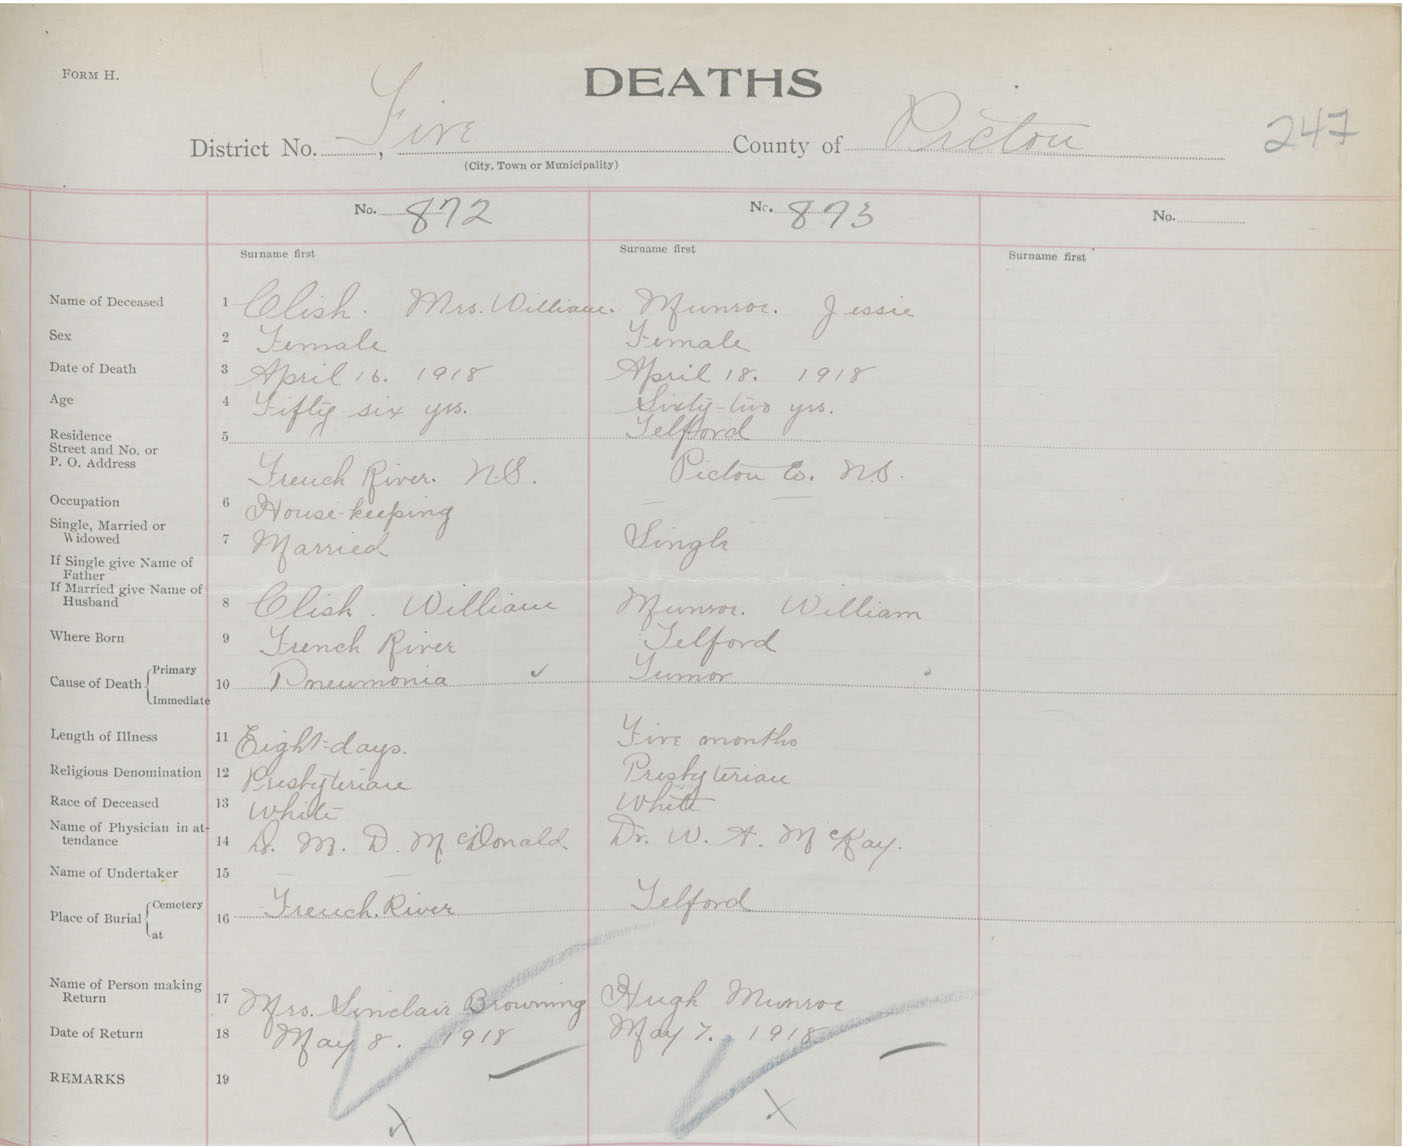 FORM H.
DEATHS
247
District No. Five, County of Pictou
(City, Town or Municipality)
No. 872 No. 873 No.
Surname first Surname first Surname first
Name of Deceased 1 Clish. Mrs. William. Munroe. Jessie
Sex 2 Female Female
Date of Death 3 April 16. 1918 April 18. 1918
Age 4 Fifty-six yrs. Sixty-two yrs.
Residence 5 Telford
Street and No. or
P. O. Address French River. N.S. Pictou Co. N.S.
Occupation 6 House-keeping —
Single, Married or
Widowed 7 Married Single
If Single give Name of
Father
If Married give Name of
Husband 8 Clish. William Munroe. William
Where Born 9 French River Telford
Cause of Death Primary 10 Pneumonia ✓ Tumor
Immediate
Length of Illness 11 Eight-days. Five months
Religious Denomination 12 Presbyterian Presbyterian
Race of Deceased 13 White White
Name of Physician in at-
tendance 14 D. M. D. McDonald. Dr. W. A. McKay.
Name of Undertaker 15 — —
Place of Burial Cemetery 16 French River Telford
at
Name of Person making
Return 17 Mrs. Sinclair Browning Hugh Munroe
Date of Return 18 May 8. 1918 May 7. 1918
REMARKS 19
x x